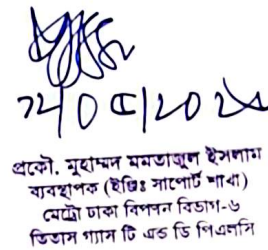 প্রকৌ. মুহাম্মদ মমতাজুল ইসলাম
ব্যবস্থাপক (ইঞ্জিঃ সাপোর্ট শাখা)
মেট্রো ঢাকা বিপনন বিভাগ-৬
তিতাস গ্যাস টি এন্ড ডি পিএলসি